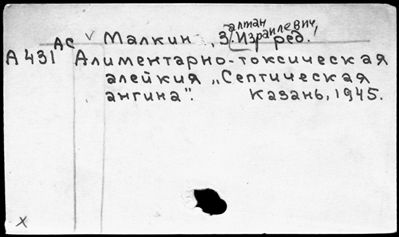 алман
АС ✓ Малкин, З. Израилевич, ред.
А431 Алиментарно-токсическая
алейкия „Септическая
ангина". Казань, 1945.
x